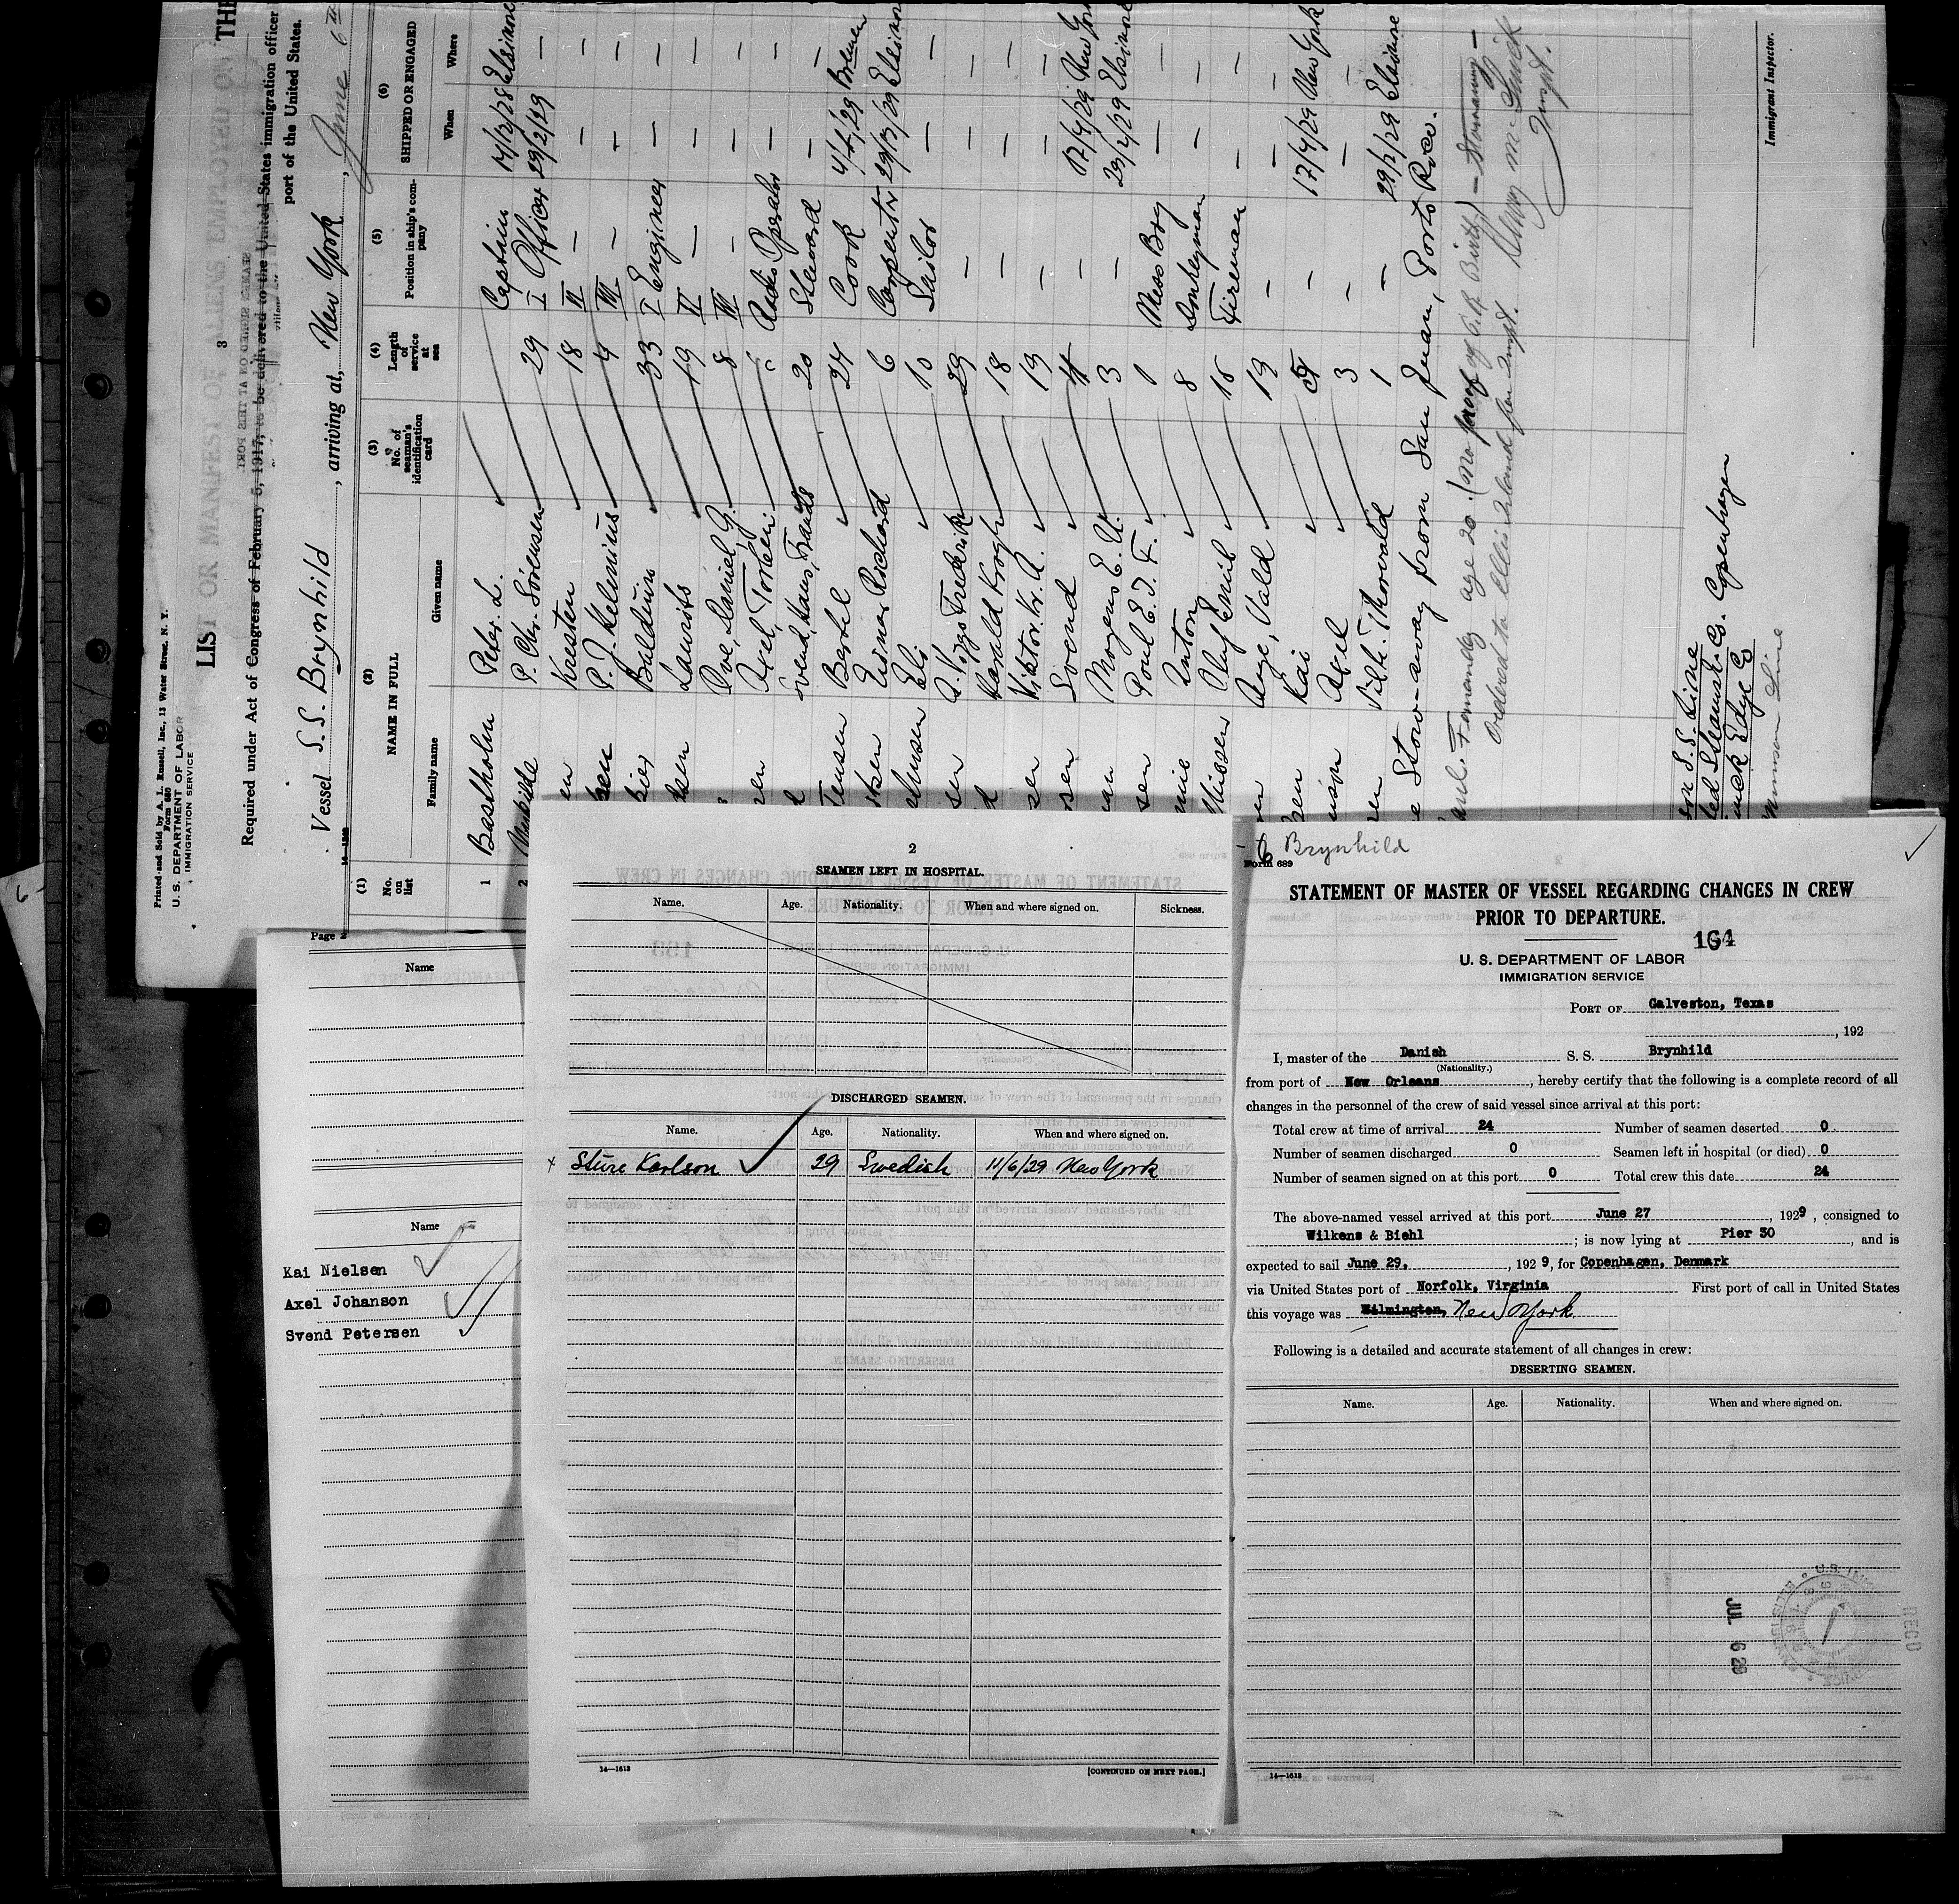 Printed and Sold by A. L. Russell, Inc., 13 Water Street, N. Y.
Form 680
U. S. DEPARTMENT OF LABOR
IMMIGRATION SERVICE
3
LIST OR MANIFEST OF ALIENS EMPLOYED ON THE
SEAMEN SIGNED ON AT THIS PORT
Required under Act of Congress of February 5, 1917, to be delivered to the United States immigration officer
port of the United States.
Vessel S.S. Brynhild, arriving at, New York, June 6
(1)
No. on list
(2)
NAME IN FULL
Family name
Given name
(3)
No. of seaman's identification card
(4)
Length of service at sea
(5)
Position in ship's company
(6)
SHIPPED OR ENGAGED
When
Where
1 Bastholm Peter L. Captain 14/12/28 Elsinore
2 P. Chr. Sörensen 29 I Officer 29/2/29 —
en Kresten 18 II — — —
sen P. J. Helenius 4 III — — —
Balduin 33 I Engineer — —
sen Laurits 19 II — — —
Ove, Daniel, G. 8 III — — —
sen Axel, Torben Radio Operator — —
Svend, Hans, Frands 20 Steward — —
Bertel 24 Cook 4/4/29 Bremen
Einar Richard 6 Carpenter 29/3/29 Elsinore
Eli 10 Sailor — —
sen A. Viggo Frederik 29 — — —
Harald Krogh 18 — — —
sen Viktor. Kr. A. 19 — — —
sen Svend — 17/4/29 New York
Mogens E. U. 3 — 23/4/29 Elsinore
sen Poul E. J. F. 1 Mess Boy — —
Anton 8 Donkeyman — —
Oluf Emil 16 Fireman — —
Aage, Vald 19 — — —
sen Kai — 17/4/29 New York
Axel 3 — — —
sen Vilh. Thorvald 1 — 29/2/29 Elsinore
Stow-away from San Juan, Porto Rico.
Fernandez age 20 (No proof of P.R. Birth)
Ordered to Ellis Island
Immigrant Inspector.
S.S. Line
Steamsh. Co. Copenhagen
Edye Co
Line
Page 2
Name
Name
Kai Nielsen
Axel Johanson
Svend Petersen
2
SEAMEN LEFT IN HOSPITAL.
Name. Age. Nationality. When and where signed on. Sickness.
DISCHARGED SEAMEN.
Name. Age. Nationality. When and where signed on.
x Sture Karlson 29 Swedish 11/6/29 New York
14—1612
[CONTINUED ON NEXT PAGE.]
Brynhild
Form 689
STATEMENT OF MASTER OF VESSEL REGARDING CHANGES IN CREW
PRIOR TO DEPARTURE.
164
U. S. DEPARTMENT OF LABOR
IMMIGRATION SERVICE
PORT OF Galveston, Texas
, 192
I, master of the Danish S. S. Brynhild
(Nationality.)
from port of New Orleans, hereby certify that the following is a complete record of all
changes in the personnel of the crew of said vessel since arrival at this port:
Total crew at time of arrival 24 Number of seamen deserted 0
Number of seamen discharged 0 Seamen left in hospital (or died) 0
Number of seamen signed on at this port 0 Total crew this date 24
The above-named vessel arrived at this port June 27, 1929, consigned to
Wilkens & Biehl; is now lying at Pier 30, and is
expected to sail June 29., 192 9, for Copenhagen, Denmark
via United States port of Norfolk, Virginia First port of call in United States
this voyage was Wilmington, New York
Following is a detailed and accurate statement of all changes in crew:
DESERTING SEAMEN.
Name. Age. Nationality. When and where signed on.
JUL 6 29
REC'D
14—1612